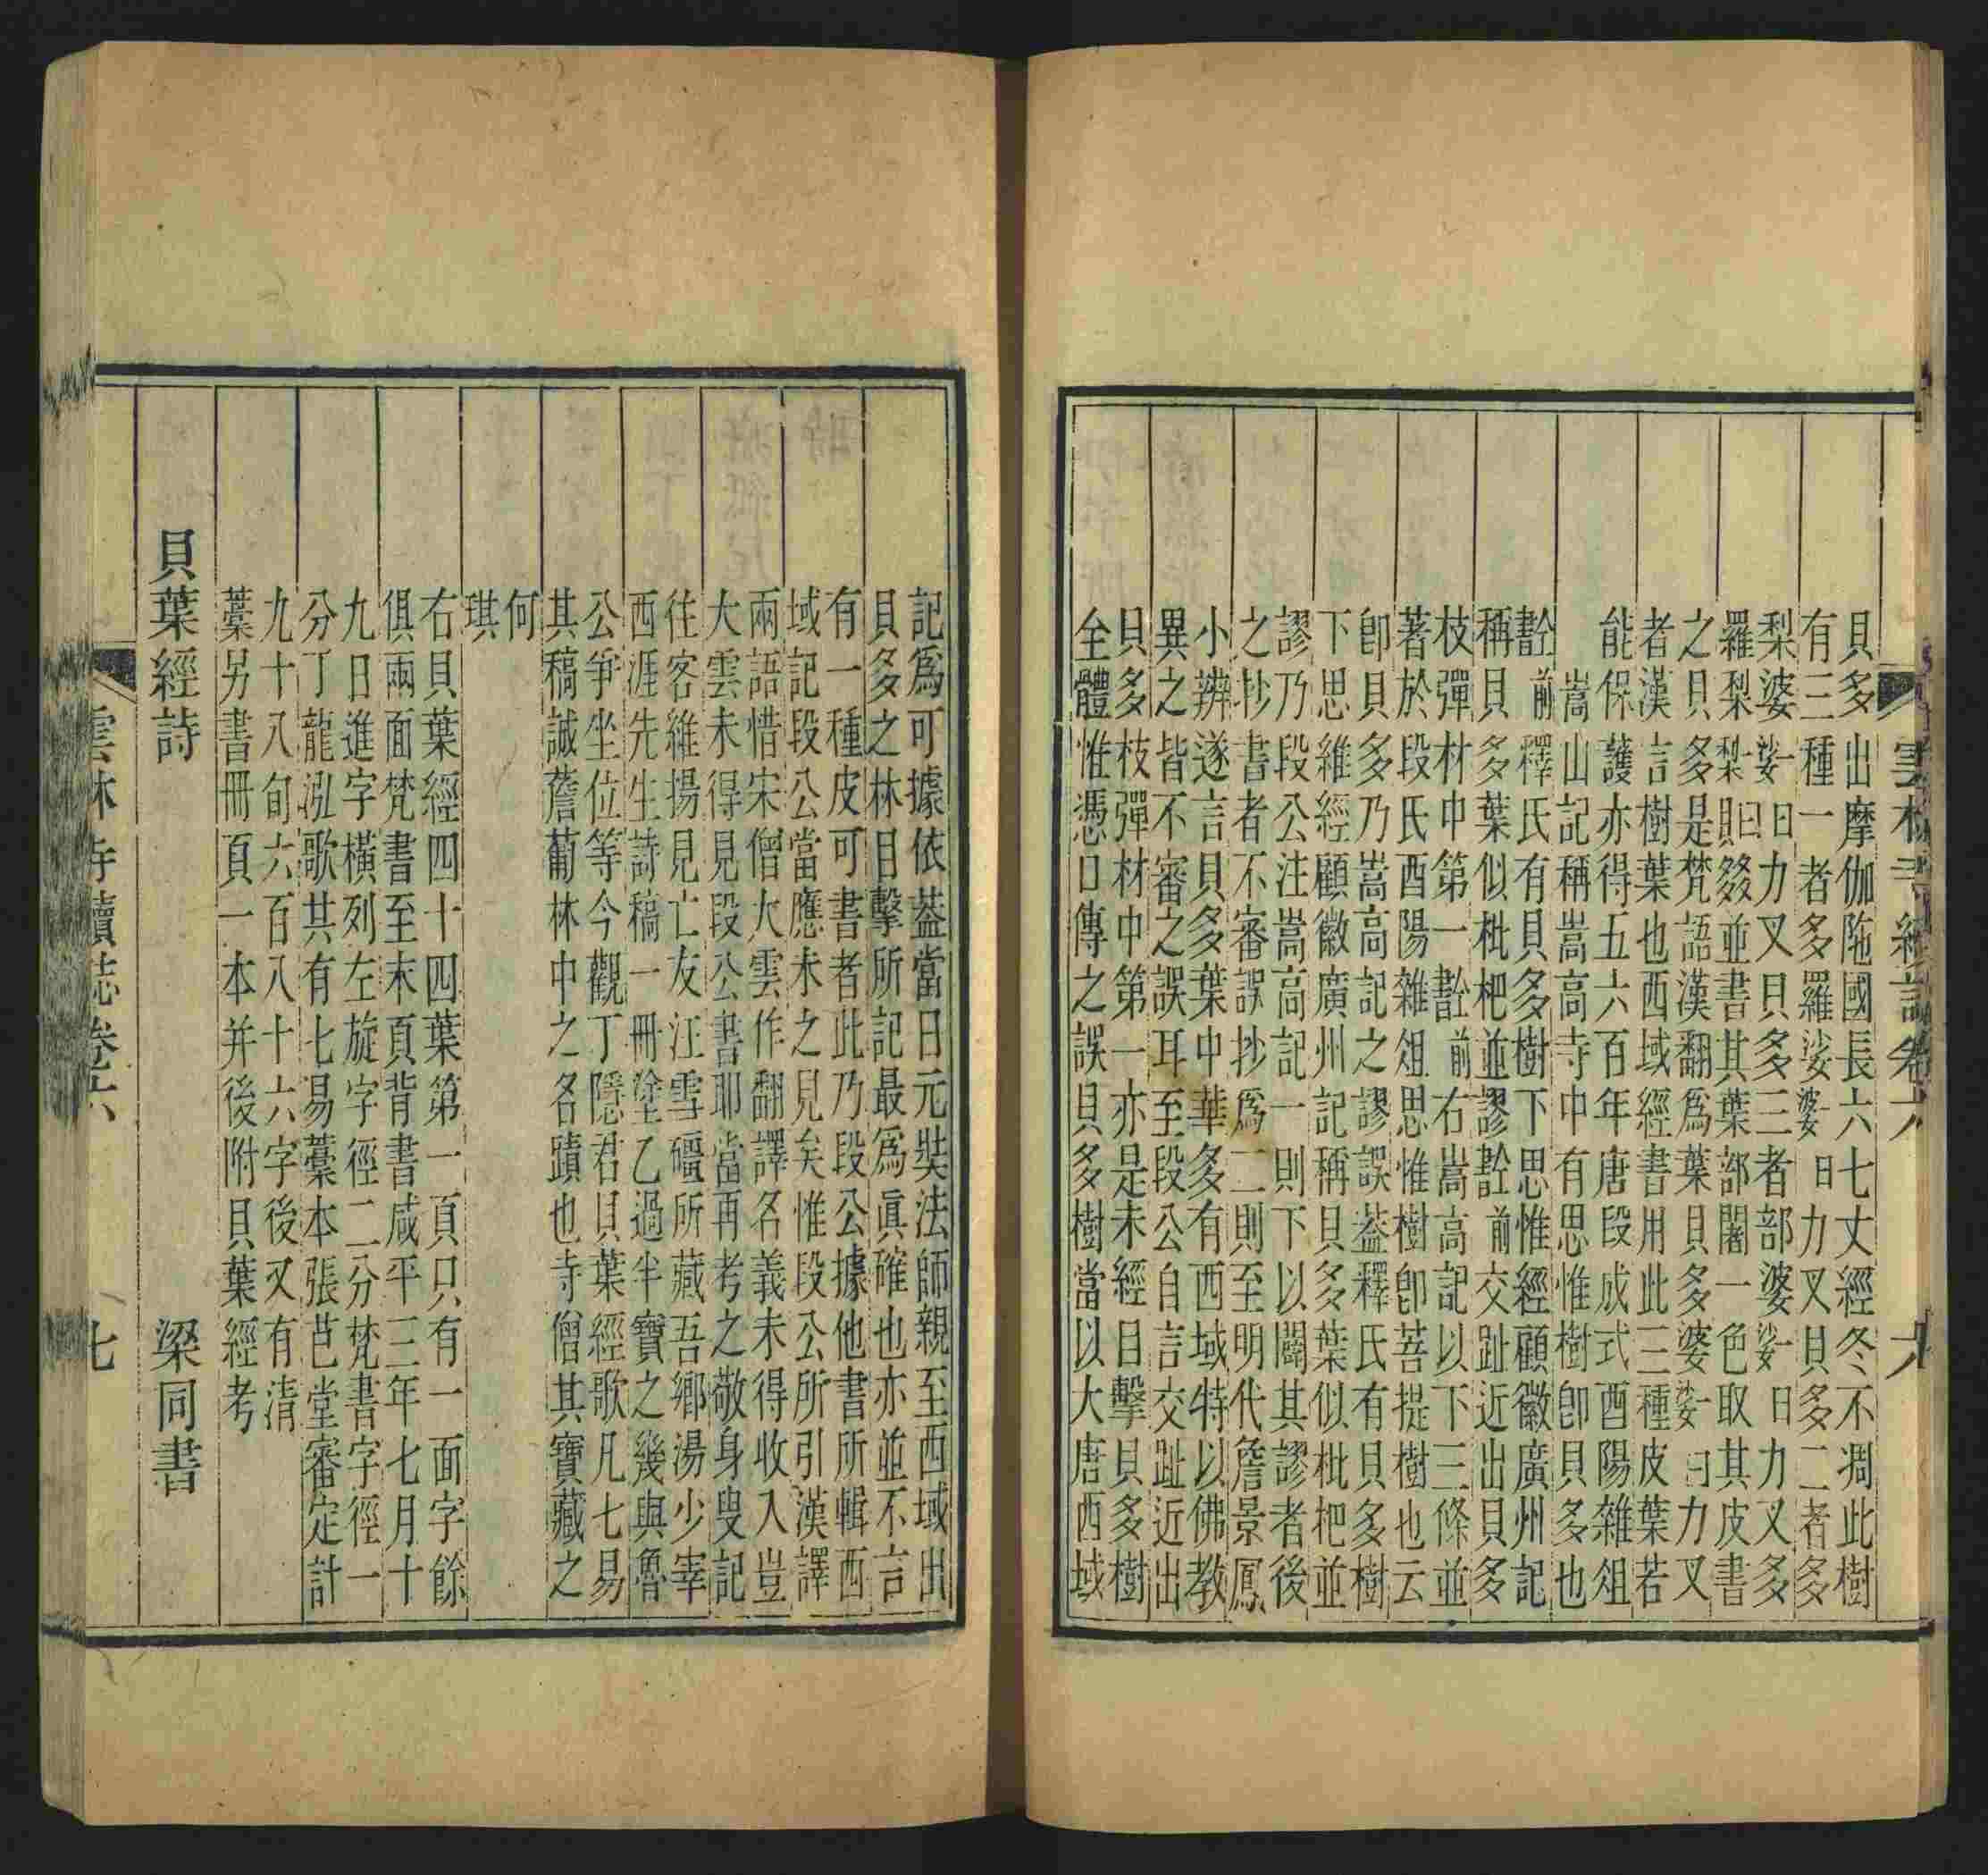 雲林寺續誌卷六 六
貝多出摩伽陁國長六七丈經冬不凋此樹
有三種一者多羅娑婆曰力叉貝多二者多
梨婆娑一曰力叉貝多三者部婆娑一曰力叉多
羅梨梨一曰則叕並書其葉部闍一色取其皮書
之貝多是梵語漢翻爲葉貝多婆娑一曰力叉
者漢言樹葉也西域經書用此三種皮葉若
能保護亦得五六百年唐段成式酉陽雜俎
嵩山記稱嵩高寺中有思惟樹卽貝多也
前釋氏有貝多樹下思惟經顧徽廣州記
稱貝多葉似枇杷並謬前交趾近出貝多
枝彈材中第一前右嵩高記以下三條並
著於段氏酉陽雜俎思惟樹卽菩提樹也云
卽貝多乃嵩高記之謬誤葢釋氏有貝多樹
下思維經顧徽廣州記稱貝多葉似枇杷並
謬乃段公注嵩高記一則下以闢其謬者後
之抄書者不審誤抄爲二則至明代詹景鳳
小辨遂言貝多葉中華多有西域特以佛教
異之皆不審之誤耳至段公自言交趾近出
貝多枝彈材中第一亦是未經目擊貝多樹
全體惟憑口傳之誤貝多樹當以大唐西域
記爲可據依葢當日元奘法師親至西域出
貝多之林目擊所記最爲眞確也亦並不言
有一種皮可書者此乃段公據他書所輯西
域記段公當應未之見矣惟段公所引漢譯
兩語惜宋僧大雲作翻譯名義未得收入豈
大雲未得見段公書耶當再考之敬身叟記
往客維揚見亡友汪雪礓所藏吾鄉湯少宰
西涯先生詩稿一冊塗乙過半寶之幾與魯
公爭坐位等今觀丁隱君貝葉經歌凡七易
其稿誠薝蔔林中之名蹟也寺僧其寶藏之
何
琪
右貝葉經四十四葉第一頁只有一面字餘
俱兩面梵書至末頁背書咸平三年七月十
九日進字橫列左旋字徑二分梵書字徑一
分丁龍泓歌其有七易藁本張芑堂審定計
九十八旬六百八十六字後又有清
藁另書冊頁一本并後附貝葉經考
貝葉經詩 梁同書
雲林寺續誌卷六 七